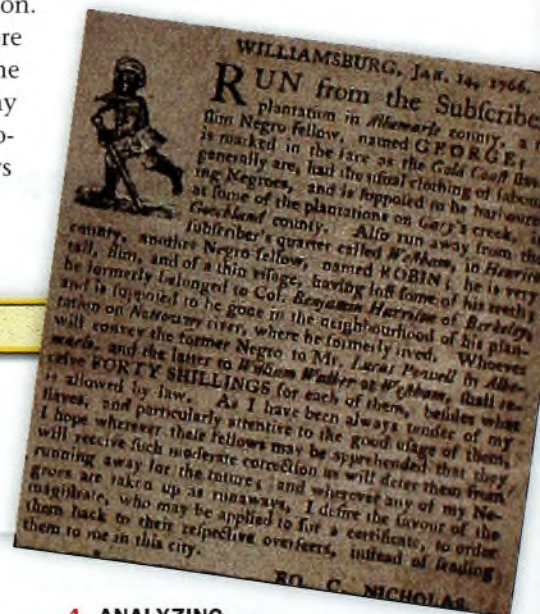 on.
re
he
ay
o-
s
WILLIAMSBURG, JAN. 14, 1766.
RUN from the Subſcribe
plantation in Albemarle county, a t
ſlim Negro fellow, named GEORGE;
is marked in the face as the Gold Coaſt ſlav
generally are, had the uſual clothing of labou
ing Negroes, and is ſuppoſed to be harboure
at ſome of the plantations on creek, i
Goochland county. Alſo run away from the
ſubſcriber's quarter called Weſtham, in Henrico
county, another Negro fellow, named ROBIN; he is very
tall, ſlim, and of a thin viſage, having loſt ſome of his teeth;
he formerly belonged to Col. Benjamin Harriſon of Berkeley,
and is ſuppoſed to be gone in the neighbourhood of his plan-
tation on Nottoway river, where he formerly lived. Whoever
will convey the former Negro to Mr. Lucas Powell in Albe-
marle, and the latter to William Walker at Weſtham, ſhall re-
ceive FORTY SHILLINGS for each of them, beſides what
is allowed by law. As I have been always tender of my
ſlaves, and particularly attentive to the good uſage of them,
I hope wherever theſe fellows may be apprehended that they
will receive ſuch moderate correction as will deter them from
running away for the future; and wherever any of my Ne-
groes are taken up as runaways, I deſire the favour of the
magiſtrate, who may be applied to for a certificate, to order
them back to their reſpective overſeers, inſtead of ſending
them to me in this city.
RO. C. NICHOLAS
4. ANALYZING